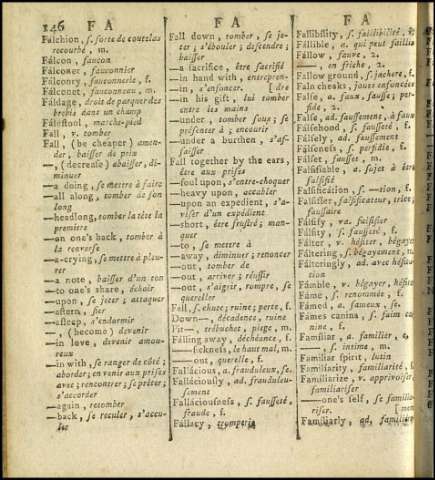 146 F A
Fálchion, s. sorte de coutelas
recourbé, m.
Fálcon, faucon
Fálconer, fauconnier
Fálconry, fauconnerie, f.
Fálconet, fauconneau, m.
Fáldage, droit de parquer des
brebis dans un champ
Fáldstool, marche-pied
Fall, v. tomber
Fall, (be cheaper) amen-
der, baisser de prix
—, (decrease) abaisser, di-
minuer
—a doing, se mettre à faire
—all along, tomber de son
long
—headlong, tomber la tête la
première
—an one's back, tomber à
la renverse
—a-crying, se mettre à pleu-
rer
—a note, baisser d'un ton
—to one's share, échoir
—upon, se jeter; attaquer
—astern, sier
—asleep, s'endormir
—, (become) devenir
—in love, devenir amou-
reux
—in with, se ranger de côté;
aborder; en venir aux prises
avec; rencontrer; se prêter;
s'accorder
—again, retomber
—back, se reculer, s'accu-
ler
F A
Fall down, tomber, se je-
ter; s'ébouler; descendre;
baisser
—a sacrifice, être sacrifié
—in hand with, entrepren-
—in, s'enfoncer. [dre
—in his gift, lui tomber
entre les mains
—under, tomber sous; se
présenter à; encourir
—under a burthen, s'af-
faisser
Fall together by the ears,
être aux prises
—foul upon, s'entre-choquer
—heavy upon, accabler
—upon an expedient, s'a-
viser d'un expédient
—short, être frustré; man-
quer
—to, se mettre à
—away, diminuer; renoncer
—out, tomber de
—out, arriver; réussir
—out, s'aigrir, rompre, se
quereller
Fell, s. chute; ruine; perte, f.
Down—, décadence, ruine
Pit—, trébuchet, piege, m.
Fálling away, déchéance, f.
—sickness, le haut mal, m.
—out, querelle, f.
Fallácious, a. frauduleux, se.
Falláciously, ad. frauduleu-
sement
Falláciousness, s. fausseté,
fraude, f.
Fállacy, tromperie
F A
Fallibílity, s. faillibilité, f.
Fállible, a. qui peut faillir
Fállow, fauve, 2.
—, en friche, 2.
Fallow ground, s. jachere, f.
Faln cheeks, joues enfoncées
False, a. faux, fausse; per-
fide, 2.
False, ad. faussement, à faux
Fálsehood, s. fausseté, f.
Fálsely, ad. faussement
Fálseness, s. perfidie, f.
Fálset, fausset, m.
Falsífiable, a. sujet à être
falsifié
Falsificátion, s. —tion, f.
Fálsifier, falsificateur, trice;
faussaire
Fálsify, va. falsifier
Fálsity, s. fausseté, f.
Fálter, v. hésiter, bégayer
Fáltering, s. bégayement, m.
Fálteringly, ad. avec hésita-
tion
Fámble, v. bégayer, hésiter
Fáme, s. renommée, f.
Fámed, a. fameux, se.
Fámes canina, s. faim ca-
nine, f.
Familiar, a. familier, e,
—, s. intime, m.
Familiar spirit, lutin
Familiárity, familiarité, f.
Familiarize, v. apprivoiser,
familiariser
—one's self, se familia-
riser. [ment
Familiarly, ad. familiere-